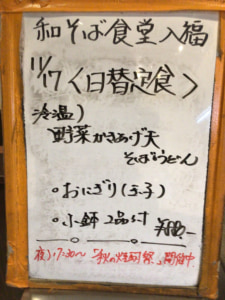 和そば食堂 入福
11/17 <日替定食>
冷温)
野菜かきあげ天
そばorうどん
○おにぎり(玉子)
○小鉢 2品付
夜)17:30〜 開催中